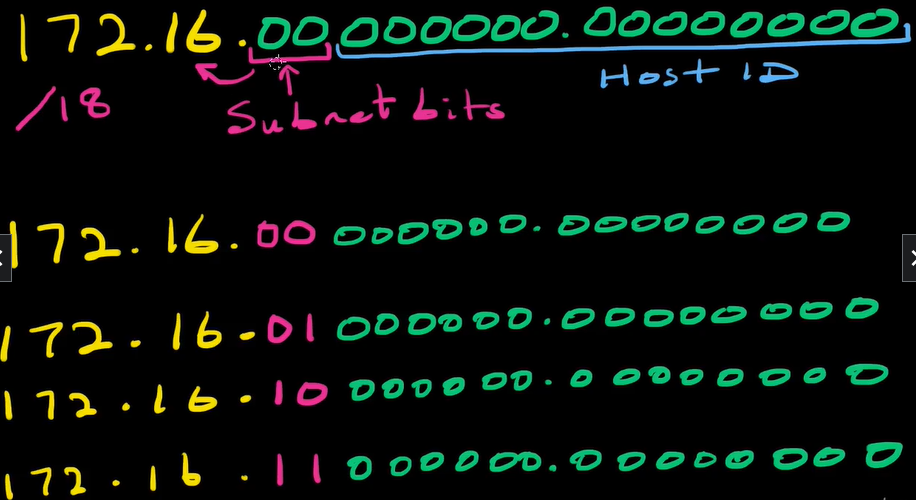 172.16.00 000000.00000000
Host ID
/18
Subnet bits
172.16.00 000000.00000000
172.16.01 000000.00000000
172.16.10 000000.00000000
172.16.11 000000.00000000